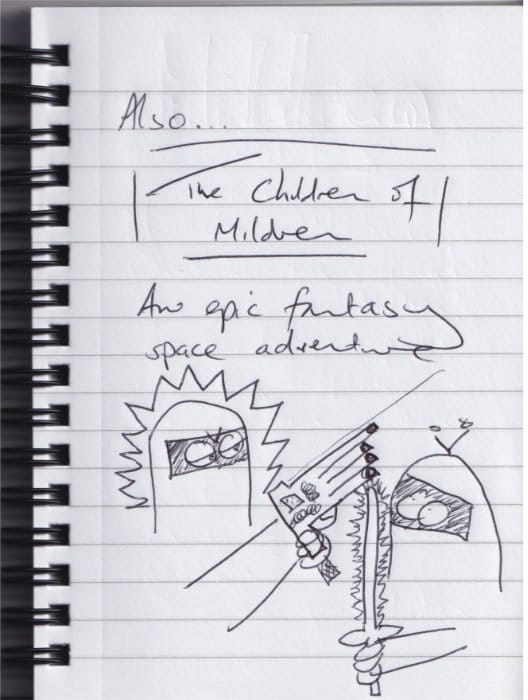 Also...
The Children of
Mildren
An epic fantasy
space adventure